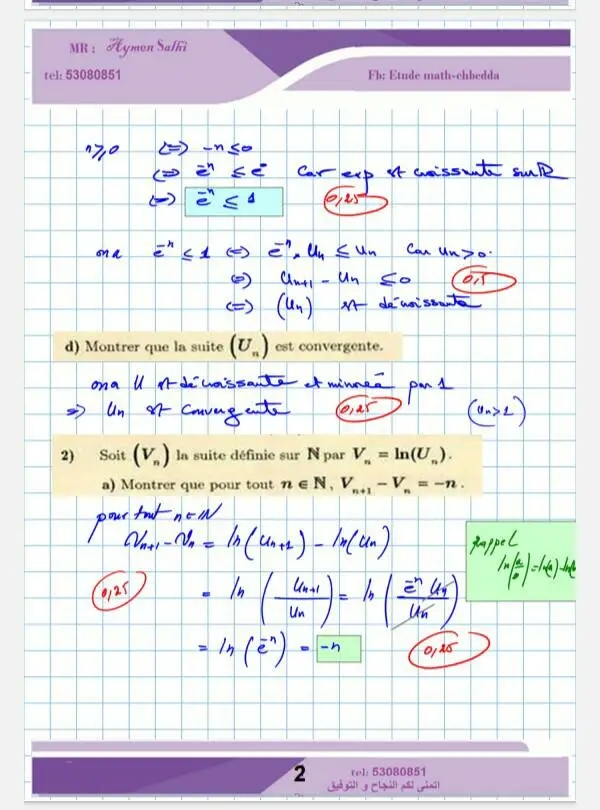 MR : Aymen Salhi
tel: 53080851
Fb: Etude math-chbedda
n≥0 (=) -n≤0
(=) e⁻ⁿ ≤ e⁰ car exp est croissante sur ℝ
(=) e⁻ⁿ ≤ 1 0,25
on a e⁻ⁿ ≤ 1 (=) e⁻ⁿ. Un ≤ Un car Un>0.
(=) Un+1 - Un ≤0 0,5
(=) (Un) est décroissante
d) Montrer que la suite (Uₙ) est convergente.
on a U est décroissante et minorée par 1
=> Un est convergente 0,25 (Un>1)
2) Soit (Vₙ) la suite définie sur ℕ par Vₙ = ln(Uₙ).
a) Montrer que pour tout n ∈ ℕ, Vₙ₊₁ − Vₙ = −n .
pour tout n∈ℕ
Vn+1 - Vn = ln(Un+1) - ln(Un)
Rappel
ln(a/b)=ln(a)-ln(
0,25 = ln(Un+1/Un) = ln(e⁻ⁿ Un/Un)
= ln(e⁻ⁿ) = -n 0,25
2
tel: 53080851
اتمنى لكم النجاح و التوفيق